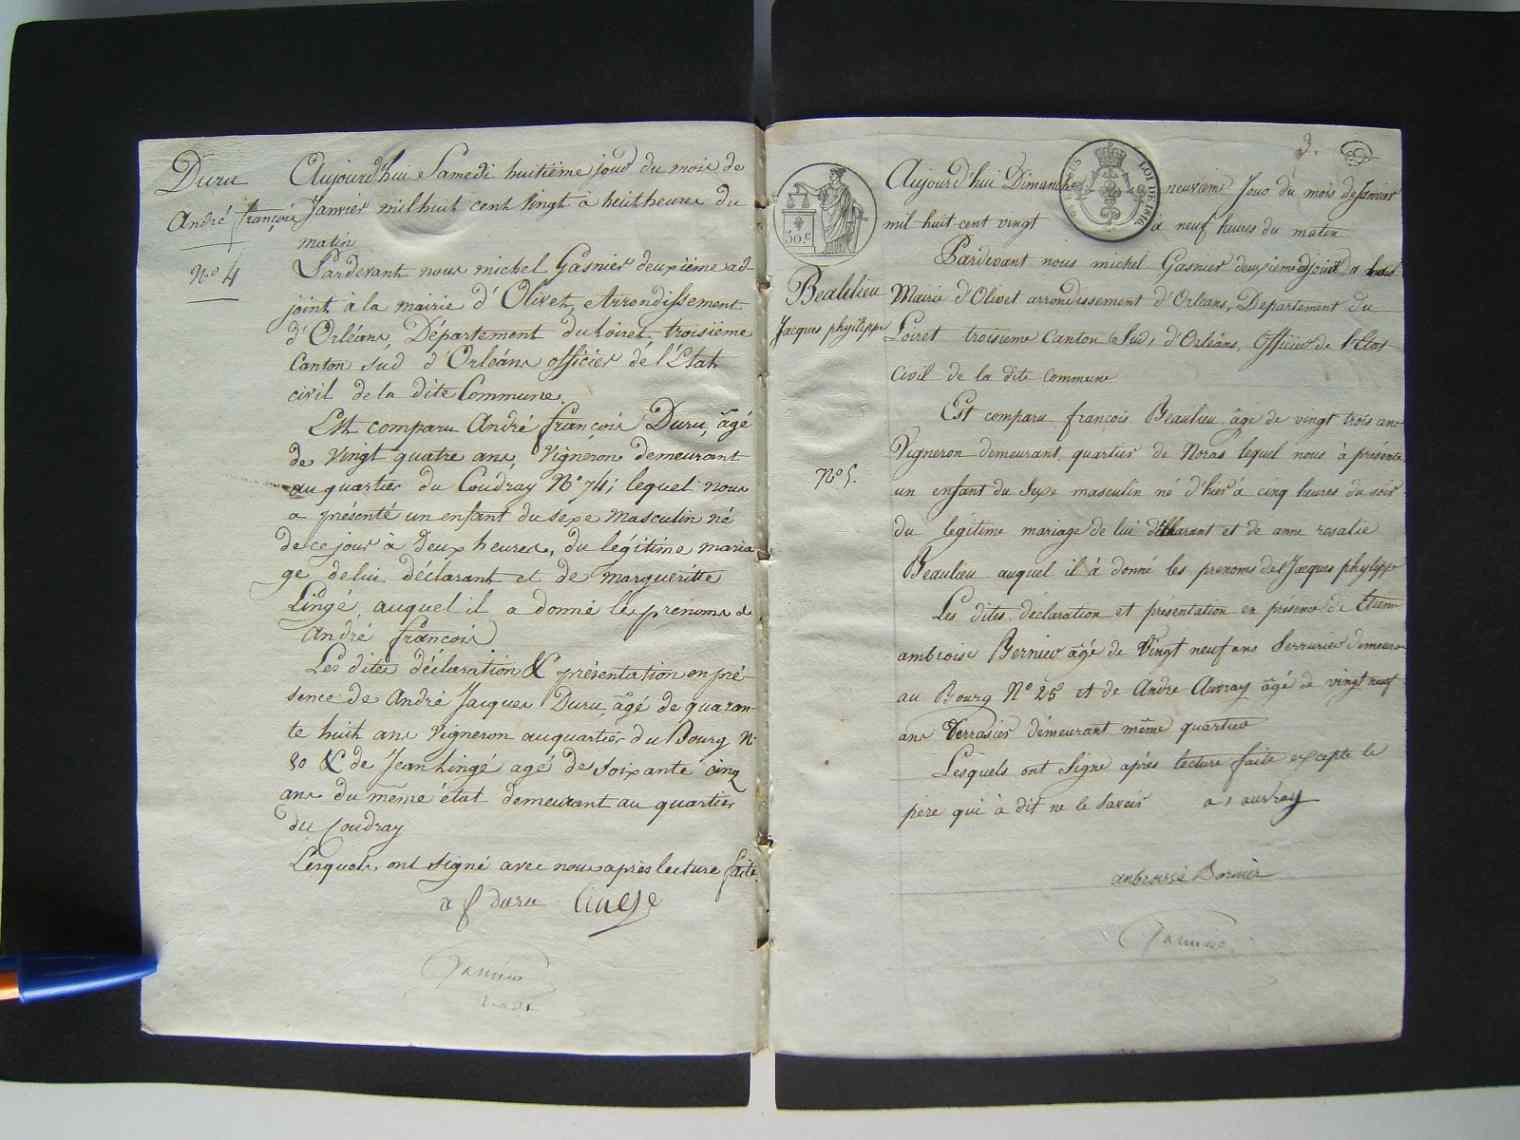 Duru
André françois
N° 4
Aujourd'hui Samedi huitième jour du mois de
Janvier mil huit cent vingt à huit heures du
matin
Pardevant nous michel Gasnier deuxième ad-
joint à la mairie d'Olivet, Arrondissement
d'Orléans, Département du Loiret, troisième
Canton sud d'Orléans officier de l'Etat
civil de la dite Commune.
Est comparu André françois Duru, âgé
de vingt quatre ans, Vigneron demeurant
au quartier du Coudray N° 74; lequel nous
a présenté un enfant du sexe masculin né
de ce jour à deux heures, du légitime maria
ge de lui déclarant et de margueritte
Lingé, auquel il a donné les prénoms de
André françois
Les dites déclaration & présentation en pré
sence de André Jacques Duru, âgé de quaran
te huit ans Vigneron au quartier du Bourg N°
80 & de Jean Lingé agé de soixante cinq
ans du même état demeurant au quartier
du Coudray
Lesquels, ont signé avec nous après lecture faite
a f duru
3.
LOI DE 1816.
50 c
Beaulieu
Jacques phylippe
N° 5.
Aujourd'hui Dimanche neuvieme Jour du mois de Janvier
mil huit cent vingt à neuf heures du matin
Pardevant nous michel Gasnier deuxieme adjoint a la
Mairie d'Olivet arrondissement d'Orléans, Departement du
Loiret troisieme Canton Sud, d'Orléans, Officier de l'Etat
Civil de la dite commune
Est comparu françois Beaulieu âge de vingt trois ans
Vigneron demeurant, quartier de Noras lequel nous à présenté
un enfant du sexe masculin né d'hier à cinq heures du soir
du legitime mariage de lui déclarant et de anne rosalie
Beaulieu auquel il à donné les prenoms de Jacques phylippe
Les dites déclaration et présentation en présence de Etienne
ambroise Bernier âgé de Vingt neuf ans Serrurier demeurant
au Bourg N° 25 et de André Auvray âgé de vingt neuf
ans Terrasier demeurant même quartier
Lesquels ont signé après lecture faite excepté le
père qui à dit ne le savoir a, auvray
ambroise Bernier